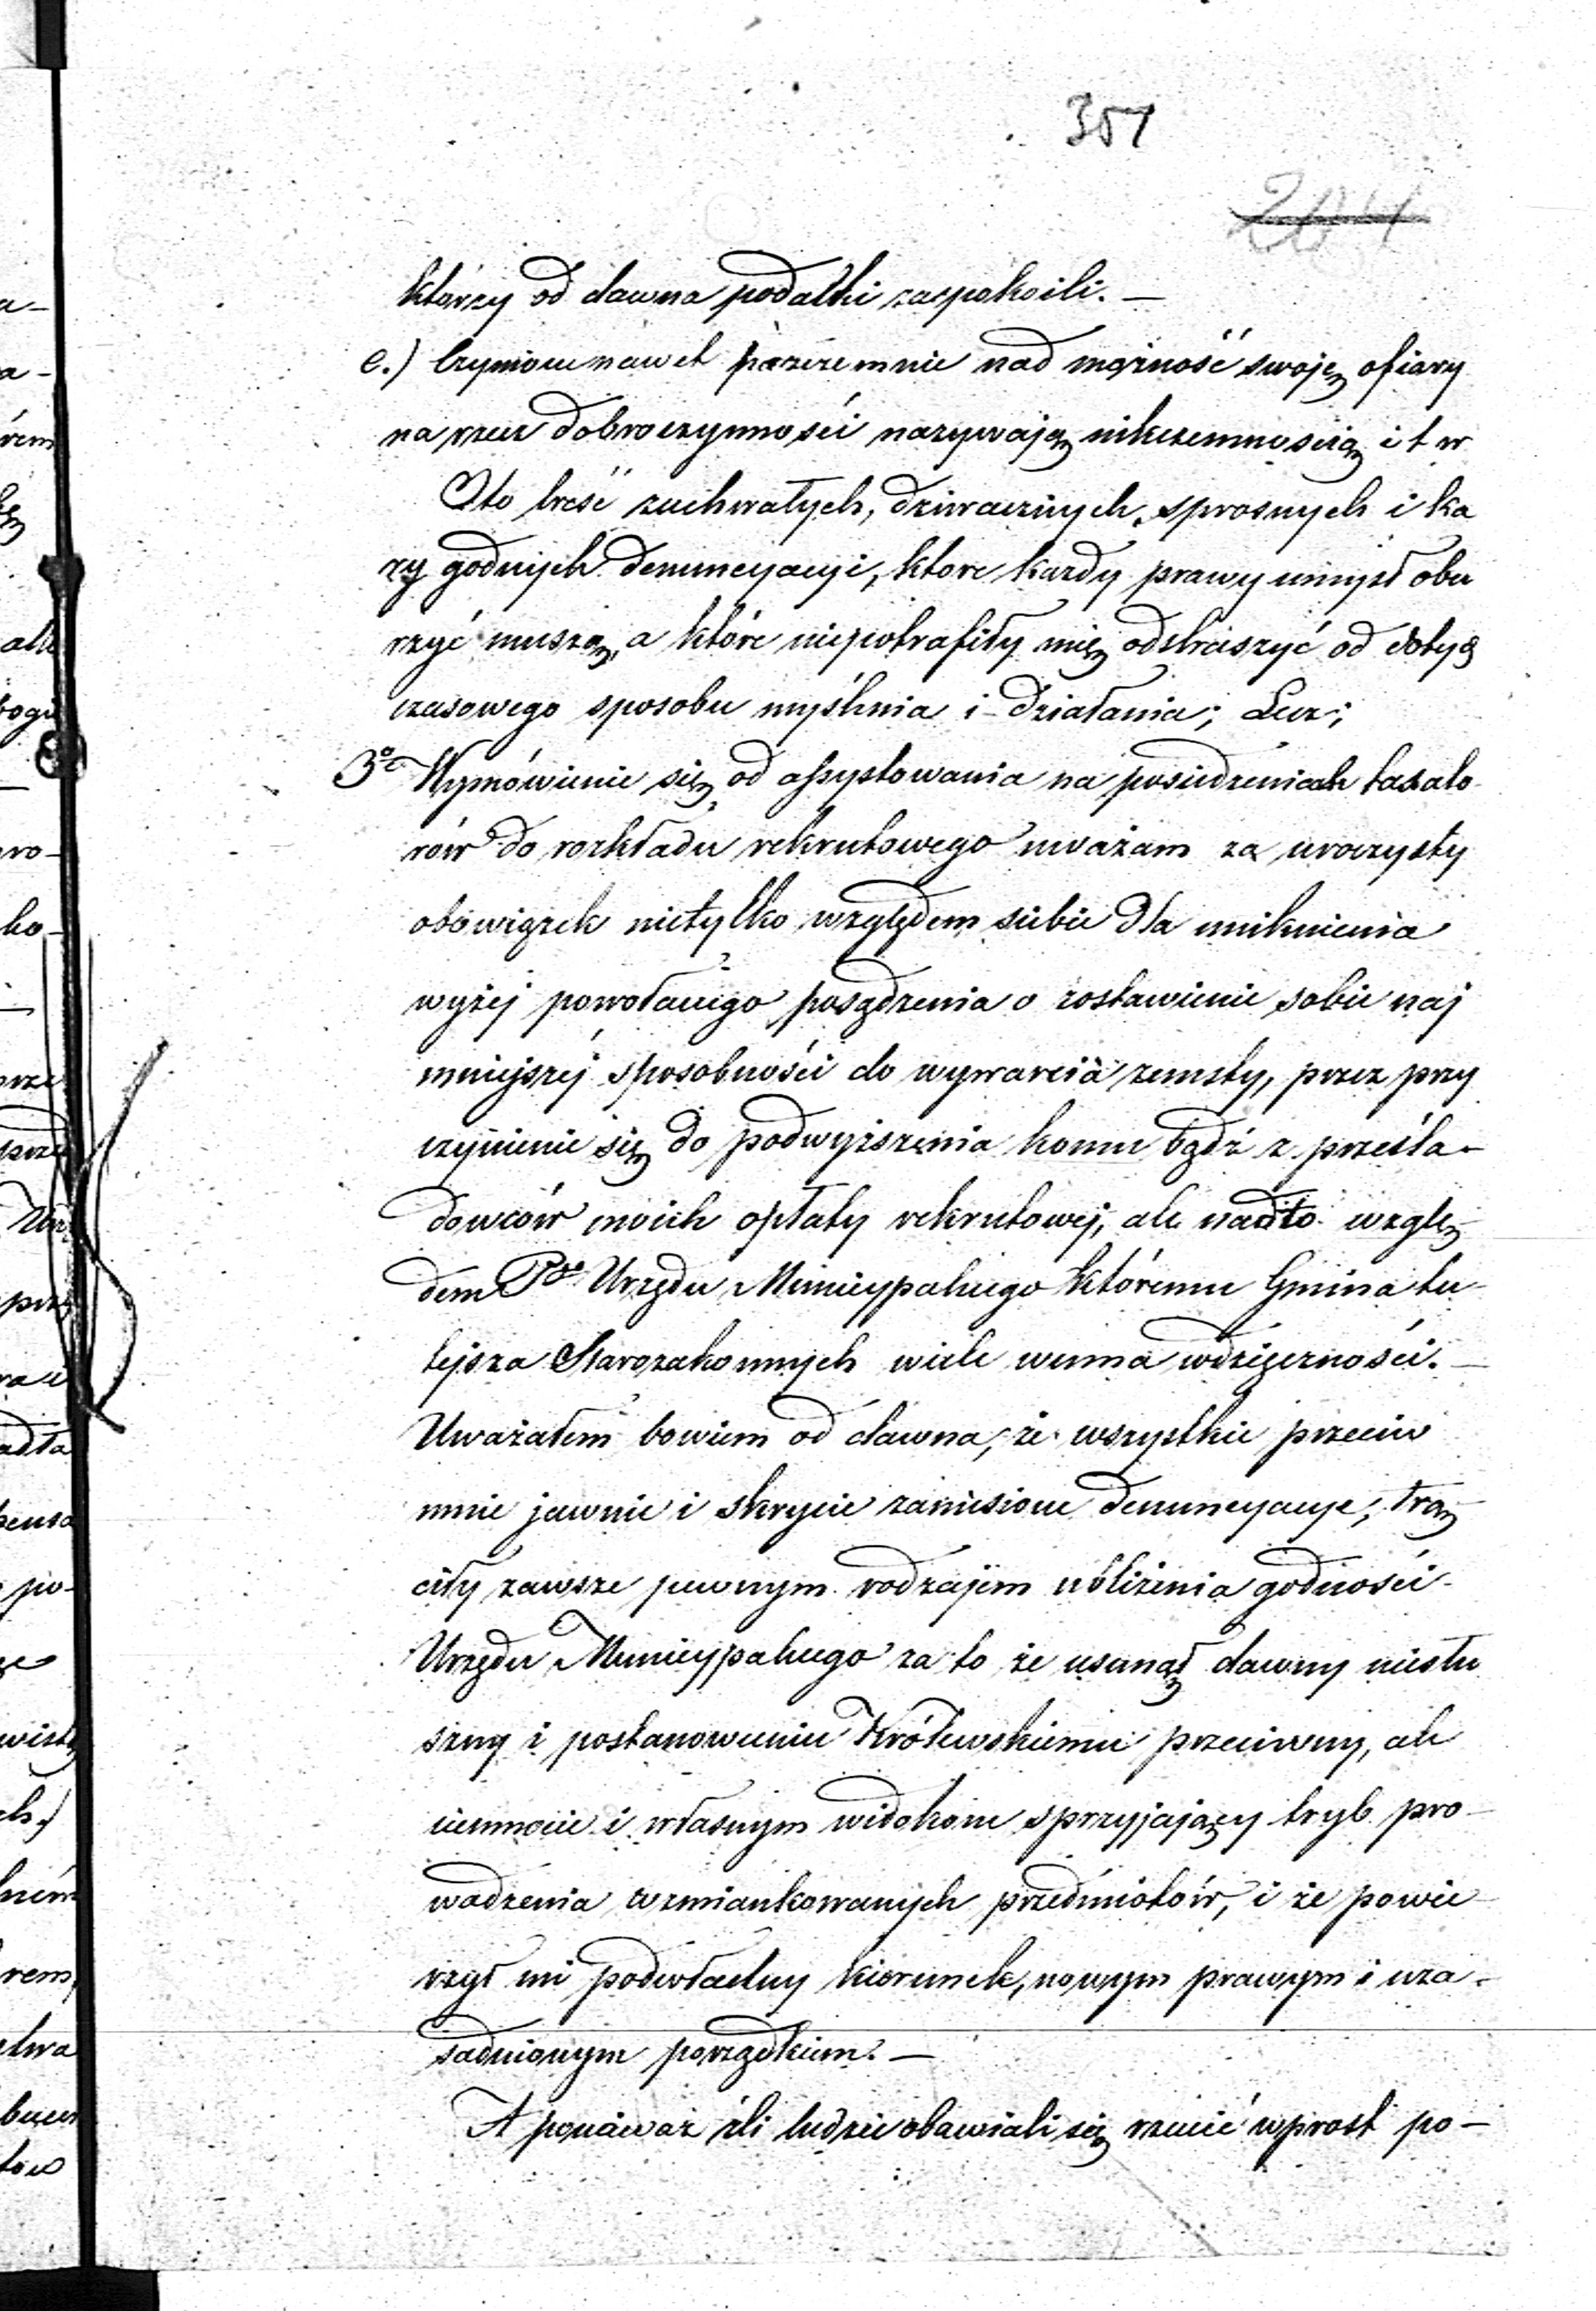 351
204
którzy od dawna podatki zaspokoili. —
e.) Czynione nawet przezemnie nad możność swoję ofiary
na rzecz dobroczynności nazywają nikczemnością i t w
Oto treść zuchwałych, dziwacznych, sprosnych i ka
ry godnych denuncyacyi, ktore każdy prawy umysł obu
rzyć muszą, a które niepotrafiły mię odstraszyć od dotyc
czasowego sposobu myślenia i działania; Lecz;
3o Wymówienie się od assystowania na posiedzeniach taxato
rów do rozkładu rekrutowego uważam za uroczysty
obowiązek nietylko względem siebie dla uniknienia
wyżej powołanego posądzenia o zostawienie sobie naj
mniejszej sposobności do wywarcia zemsty, przez przy
czynienie się do podwyższenia komu bądź z prześla-
dowców moich opłaty rekrutowej, ale nadto wzglę
dem Pgo Urzędu Municypalnego któremu Gmina tu
tejsza Starozakonnych wiele winna wdzięczności. —
Uważałem bowiem od dawna, że wszystkie przeciw
mnie jawnie i skrycie zaniesione denuncyacye, trą
ciły zawsze pewnym rodzajem ubliżenia godności
Urzędu Municypalnego za to że usunął dawny niesłu
szny i postanowieniu Królewskiemu przeciwny, ale
ciemnocie i własnym widokom sprzyjający tryb pro-
wadzenia wzmiankowanych przedmiotów, i że powie
rzył mi podwładny kierunek, nowym prawym i uza-
sadnionym porządkiem. —
A ponieważ źli ludzie obawiali się rzucić wprost po-